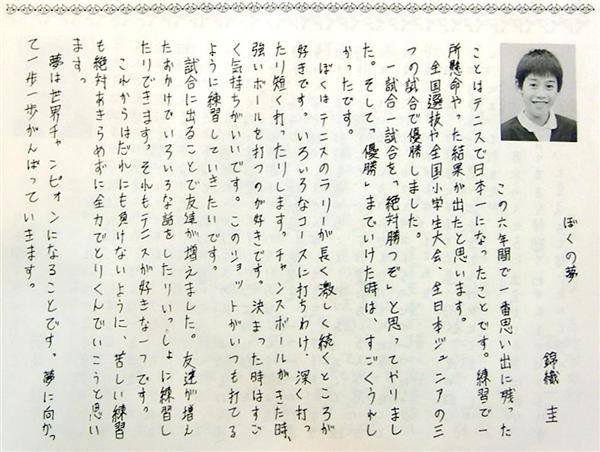 ぼくの夢
錦織　圭
この六年間で一番思い出に残った
ことはテニスで日本一になったことです。練習で一
所懸命やった結果が出たと思います。
全国選抜や全国小学生大会、全日本ジュニアの三
つの試合で優勝しました。
一試合一試合を「絶対勝つぞ」と思ってやりまし
た。そして「優勝」までいけた時は、すごくうれし
かったです。
ぼくはテニスのラリーが長く激しく続くところが
好きです。いろいろなコースに打ちわけ、深く打っ
たり短く打ったりします。チャンスボールがきた時、
強いボールを打つのが好きです。決まった時はすご
く気持ちがいいです。このショットがいつも打てる
ように練習していきたいです。
試合に出ることで友達が増えました。友達が増え
たおかげでいろいろな話をしたりいっしょに練習し
たりできます。それもテニスが好きな一つです。
これからはだれにも負けないように、苦しい練習
も絶対あきらめずに全力でとりくんでいこうと思い
ます。
夢は世界チャンピオンになることです。夢に向かっ
て一歩一歩がんばっていきます。